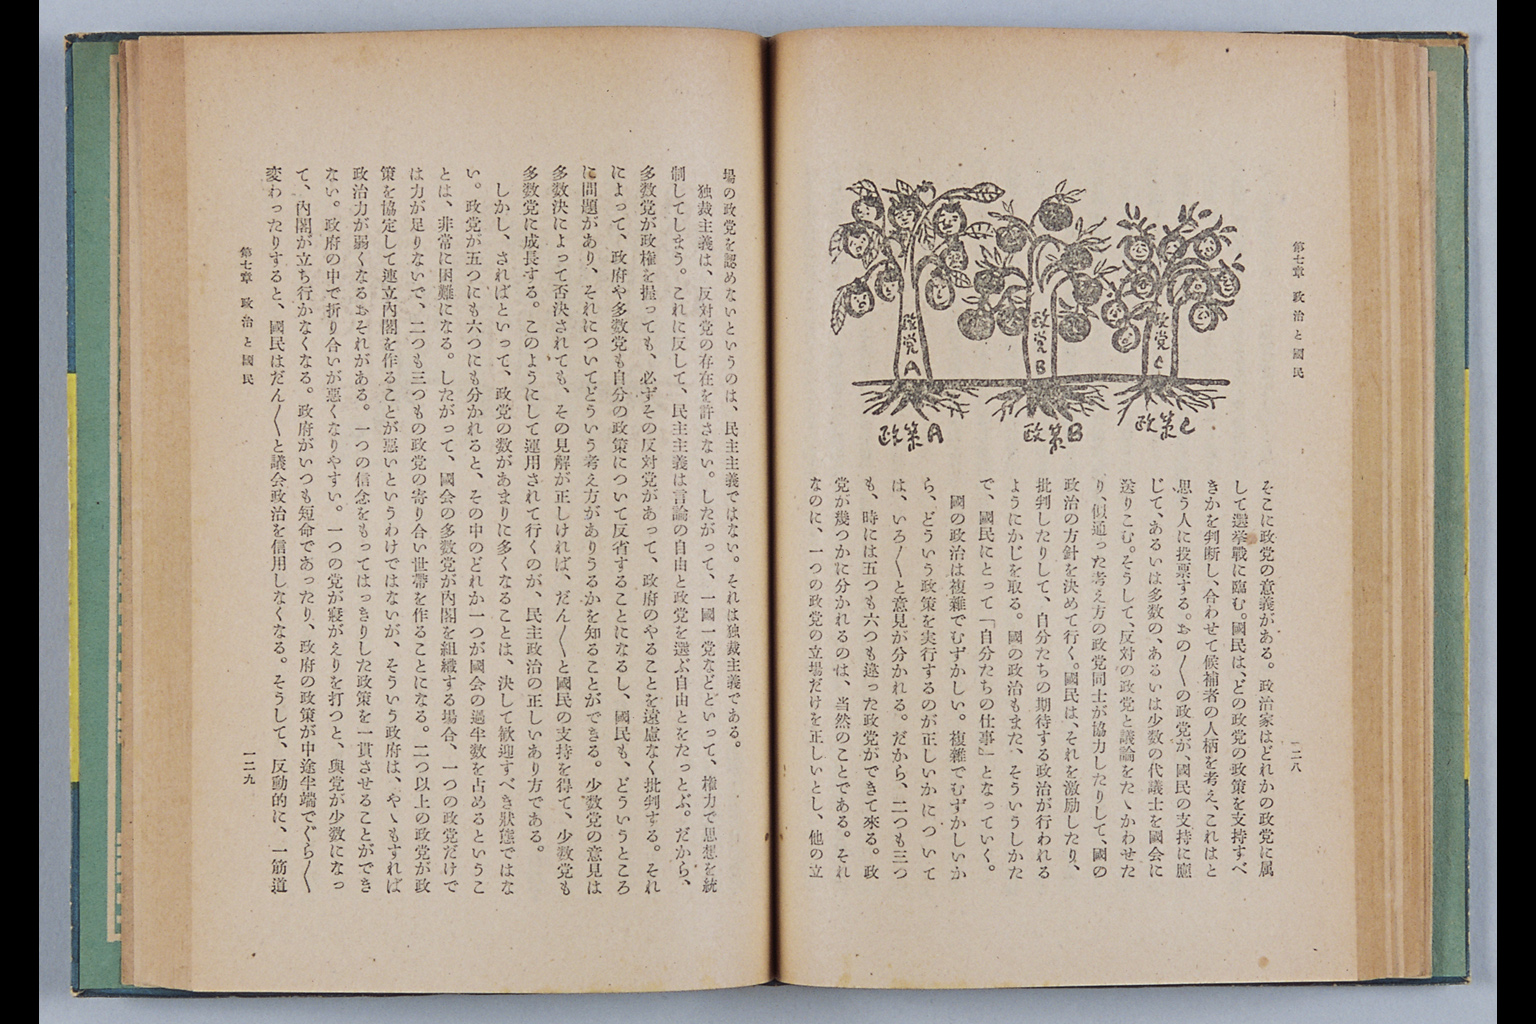 第七章　政治と國民
一二八
政党A
政党B
政党C
政策A
政策B
政策C
そこに政党の意義がある。政治家はどれかの政党に属
して選挙戰に臨む。國民は、どの政党の政策を支持すべ
きかを判断し、合わせて候補者の人柄を考え、これはと
思う人に投票する。おの〳〵の政党が、國民の支持に應
じて、あるいは多数の、あるいは少数の代議士を國会に
送りこむ。そうして、反対の政党と議論をたゝかわせた
り、似通った考え方の政党同士が協力したりして、國の
政治の方針を決めて行く。國民は、それを激励したり、
批判したりして、自分たちの期待する政治が行われる
ようにかじを取る。國の政治もまた、そういうしかた
で、國民にとって「自分たちの仕事」となっていく。
國の政治は複雑でむずかしい。複雑でむずかしいか
ら、どういう政策を実行するのが正しいかについて
は、いろ〳〵と意見が分かれる。だから、二つも三つ
も、時には五つも六つも違った政党ができて來る。政
党が幾つかに分かれるのは、当然のことである。それ
なのに、一つの政党の立場だけを正しいとし、他の立
場の政党を認めないというのは、民主主義ではない。それは独裁主義である。
独裁主義は、反対党の存在を許さない。したがって、一國一党などといって、権力で思想を統
制してしまう。これに反して、民主主義は言論の自由と政党を選ぶ自由とをたっとぶ。だから、
多数党が政権を握っても、必ずその反対党があって、政府のやることを遠慮なく批判する。それ
によって、政府や多数党も自分の政策について反省することになるし、國民も、どういうところ
に問題があり、それについてどういう考え方がありうるかを知ることができる。少数党の意見は
多数決によって否決されても、その見解が正しければ、だん〳〵と國民の支持を得て、少数党も
多数党に成長する。このようにして運用されて行くのが、民主政治の正しいあり方である。
しかし、さればといって、政党の数があまりに多くなることは、決して歓迎すべき狀態ではな
い。政党が五つにも六つにも分かれると、その中のどれか一つが國会の過半数を占めるというこ
とは、非常に困難になる。したがって、國会の多数党が内閣を組織する場合、一つの政党だけで
は力が足りないで、二つも三つもの政党の寄り合い世帶を作ることになる。二つ以上の政党が政
策を協定して連立内閣を作ることが悪いというわけではないが、そういう政府は、やゝもすれば
政治力が弱くなるおそれがある。一つの信念をもってはっきりした政策を一貫させることができ
ない。政府の中で折り合いが悪くなりやすい。一つの党が寝がえりを打つと、與党が少数になっ
て、内閣が立ち行かなくなる。政府がいつも短命であったり、政府の政策が中途半端でぐら〳〵
変わったりすると、國民はだん〳〵と議会政治を信用しなくなる。そうして、反動的に、一筋道
第七章　政治と國民
一二九